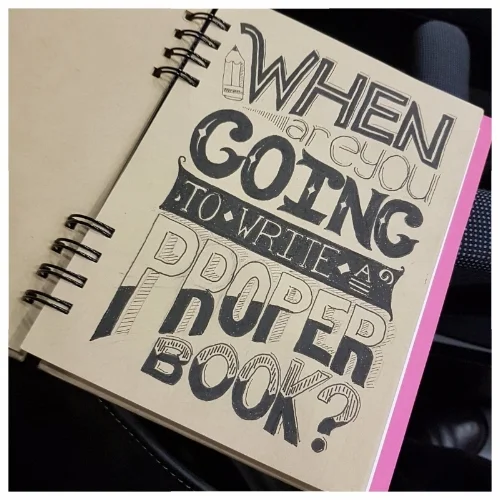 WHEN
are you
GOING
TO • WRITE • A
PROPER
BOOK?